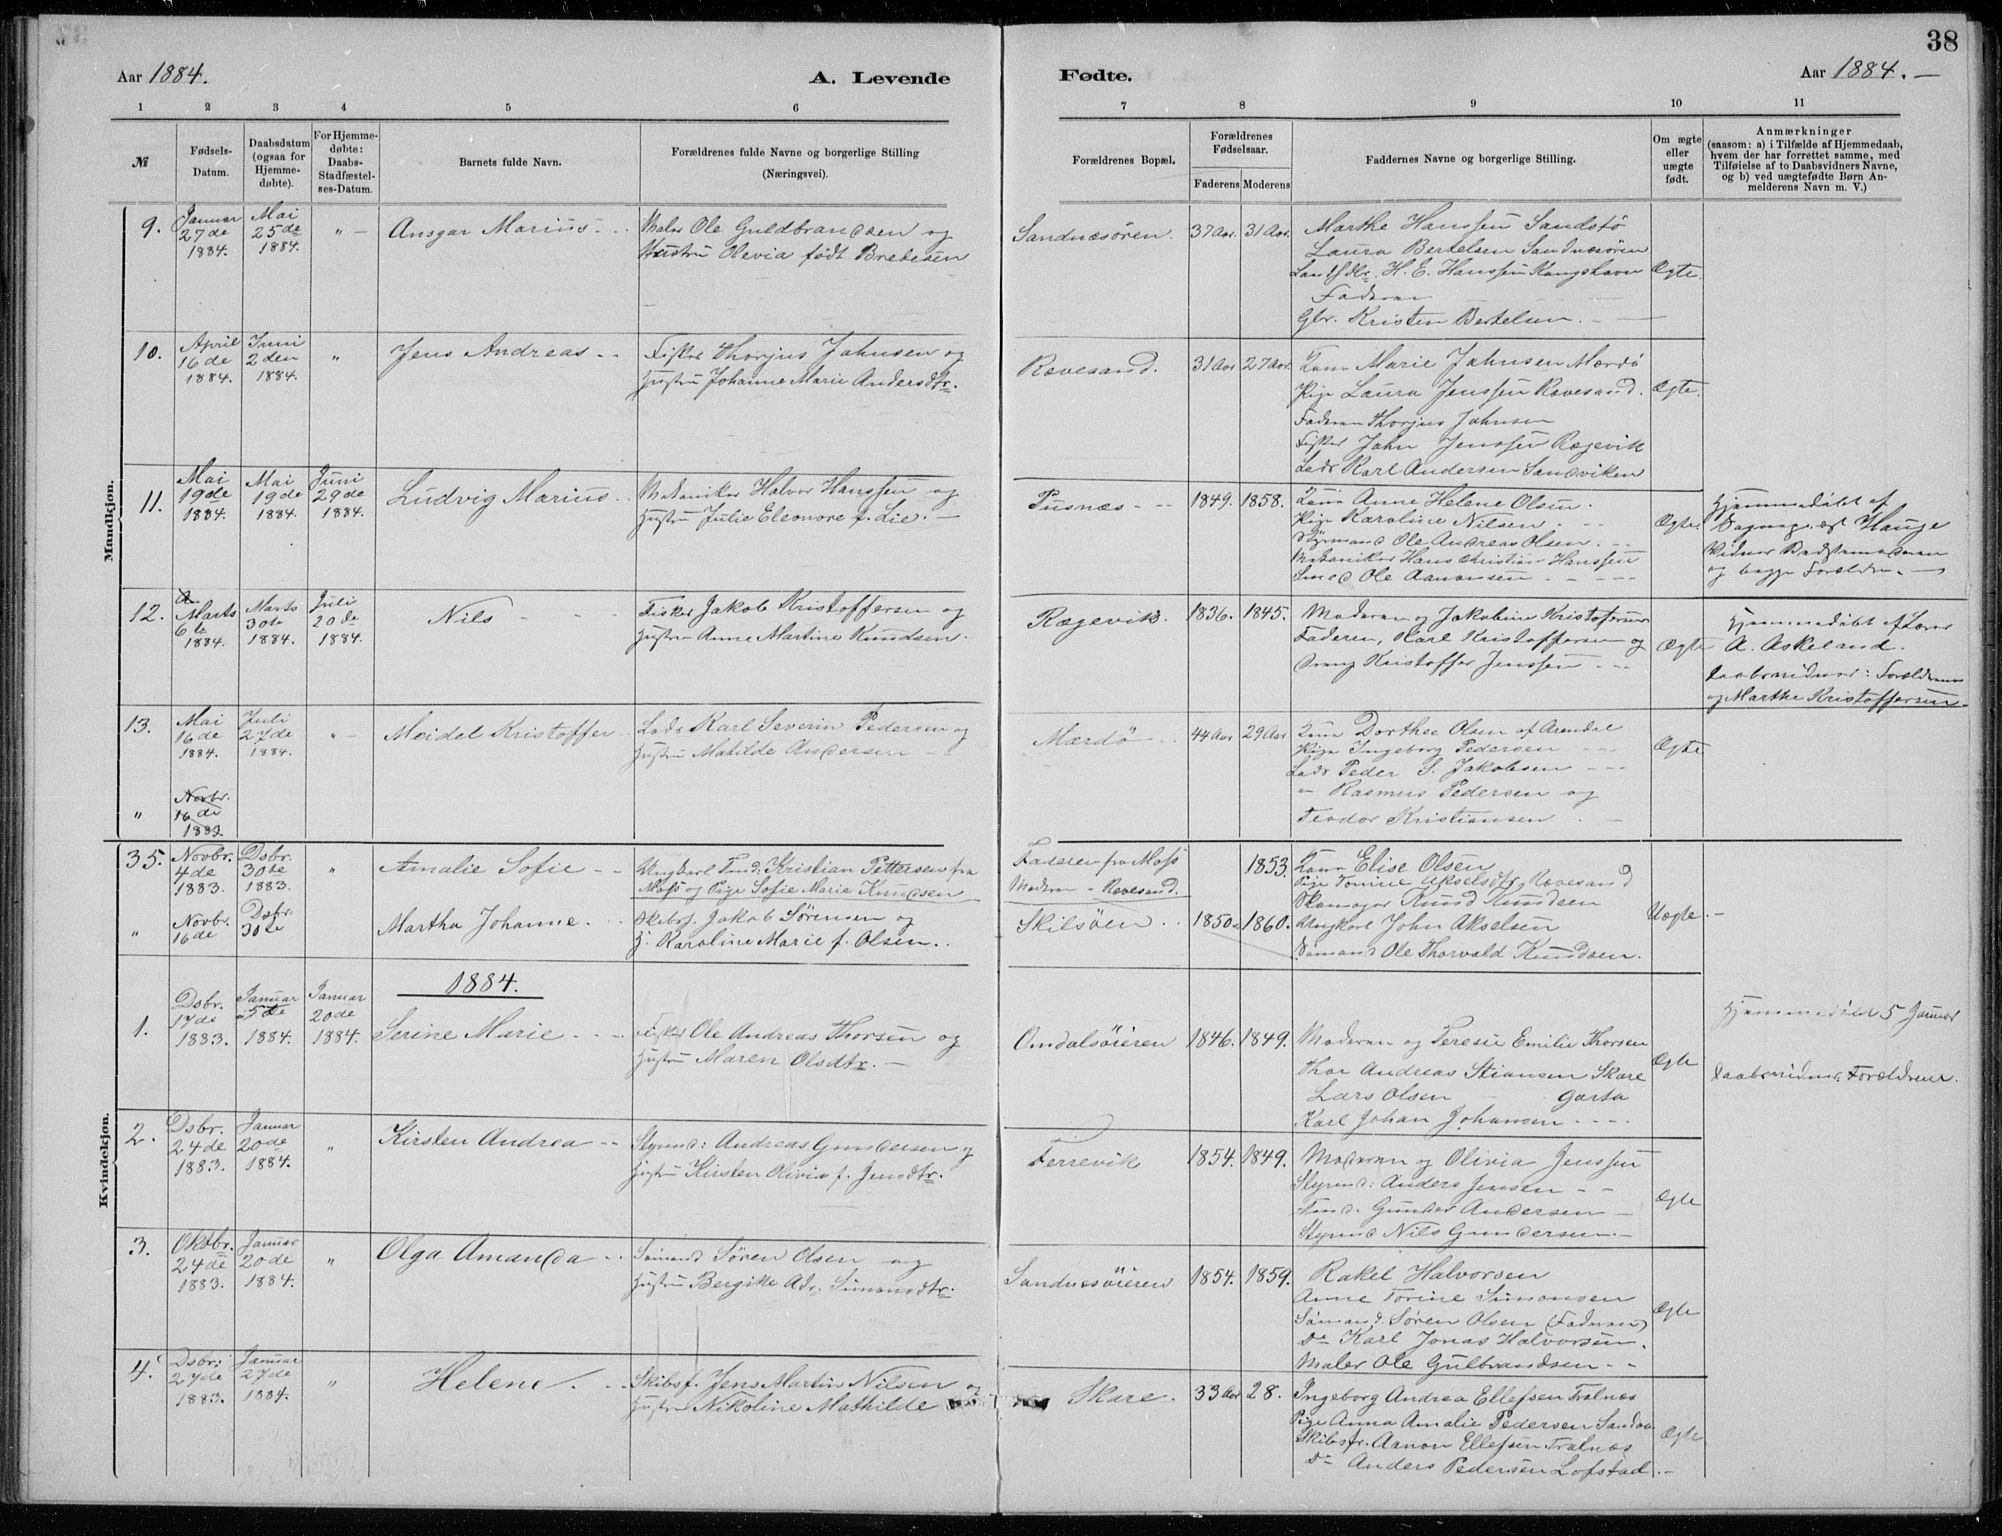 38
Aar 1884.
A. Levende
Fødte.
Aar 1884. —
1 2 3 4 5 6 7 8 9 10 11
№
Fødsels-
Datum.
Daabsdatum
(ogsaa for
Hjemme-
døbte).
For Hjemme-
døbte:
Daabs-
Stadfæstel-
ses-Datum.
Barnets fulde Navn.
Forældrenes fulde Navne og borgerlige Stilling
(Næringsvei).
Forældrenes Bopæl.
Forældrenes
Fødselsaar.
Faderens Moderens
Faddernes Navne og borgerlige Stilling.
Om ægte
eller
uægte
født.
Anmærkninger
(saasom: a) i Tilfælde af Hjemmedaab,
hvem der har forrettet samme, med
Tilføielse af to Daabsvidners Navne,
og b) ved uægtefødte Børn An-
melderens Navn m. V.)
Mandkjøn.
9.
Januar
27de
1884.
Mai
25de
1884.
" —
Ansgar Marius
Maler Ole Guldbrandsen og
Hustru Olevia født Bredesen
Sandnæsören.
37 Aar. 31 Aar.
Marthe Hanssen Sandstø
Laura Bertelsen Sandnæsören
H. E. Hanssen Kongshavn
Faderen
Gbr. Kristen Bertelsen.
Ægte.
10.
April
16de
1884.
Juni
2den
1884.
"
Jens Andreas
Fisker Thorjus Johnsen og
Hustru Johanne Marie Andersdtr.
Rævesand.
31 Aar 27 Aar.
Kone Marie Johnsen Mærdø
Pige Laura Jenssen Rævesand.
Faderen Thorjus Johnsen
Fisker John Jenssen Rægevik
Lods Karl Andersen Sandviken
Ægte.
11.
Mai
19de
1884.
Mai
19de
1884.
Juni
29de
1884.
Ludvig Marius
Mekaniker Halvor Hanssen og
Hustru Julie Eleonore f. Lie. —
Pusnæs
1849. 1858.
Kone Anne Helene Olsen.
Pige Karoline Nilsen
Styrmand Ole Andreas Olsen
Mekaniker Hans Christian Hanssen
Smed Ole Aanonsen
Ægte.
Hjemmedøbt af
Hauge
Vidner Bedstemoderen
og begge Forældre. —
12.
Marts
6te
1884.
Marts
30te
1884.
Juli
20de
1884.
Nils
Fisker Jakob Kristoffersen og
Hustru Anne Martine Knudsen.
Rægevik.
1836. 1845.
Moderen og Jakobine Kristofersen
Faderen, Karl Kristoffersen og
Dreng Kristoffer Jenssen
Ægte
Hjemmedøbt af Lærer
A. Askeland.
Daabsvidner: Forældrene
og Marthe Kristoffersen.
13.
Mai
16de
1884.
Juli
27de
1884.
" —
Meidel Kristoffer
Lods Karl Severin Pedersen og
Hustru Mathilde Andersen
Mærdö
44 Aar 29 Aar.
Kone Dorthee Olsen af Arendal
Pige Ingeborg Pedersen
Lods Peder S. Jakobsen
" Rasmus Pedersen og
Teodor Kristiansen
Ægte
"
Novbr.
16de
1882
Kvindekjøn.
35.
Novbr.
4de
1883.
Dsbr.
30te
1883.
"
Amalie Sofie
Ungkarl Tmd. Kristian Pettersen fra
Moss og Pige Sofie Marie Knudsen
Faderen fra Moss
Moderen " Rævesand.
1853.
Kone Elise Olsen
Pige Tomine Akselsdtr. Rævesand
Skomager Knud Knudsen
Ungkarl John Akselsen
Sømand Ole Thorvald Knudsen.
Uægte
"
Novbr.
16de
Dsbr.
30te
Martha Johanne.
Skibsf. Jakob Sörensen og
H. Karoline Marie f. Olsen.
Skilsöen
1850. 1860.
1884.
1.
Dsbr.
17de
1883.
Januar
5de
1884.
Januar
20de
1884.
Serine Marie
Fisker Ole Andreas Thorsen og
Hustru Maren Olsdtr. —
Omdalsöieren
1846. 1849.
Moderen og Teresie Emilie Thorsen
Thor Andreas Stiansen Skare
Lars Olsen Garta
Karl Johan Johansen
Ægte
Hjemmedøbt 5 Januar
Daabsvidner. Forældrene.
2.
Dsbr.
24de
1883.
Januar
20de
1884.
"
Kirsten Andrea
Styrmd: Andreas Gundersen og
Hustru Kirsten Olivia f. Jensdtr.
Ferrevik
1854. 1849.
Moderen og Olivia Jenssen
Styrmd: Anders Jensen
Tmd. Gunder Andersen
Styrmd Nils Gundersen. —
Ægte
3.
Oktbr.
24de
1883.
Januar
20de
1884.
"
Olga Amanda
Sømand Søren Olsen og
Hustru Bergike Adr. Simonsdtr.
Sandnæsöieren
1854. 1859.
Rakel Halvorsen
Anne Torine Simonsen
Sømand. Søren Olsen (Faderen)
Do Karl Jonas Halvorsen.
Maler Ole Gulbrandsen
Ægte
4.
Dsbr:
27de
1883.
Januar
27de
1884.
"
Helene.
Skibsf. Jens Martin Nilsen og
Hustru Nikoline Mathilde
Skare.
33 Aar 28.
Ingeborg Andrea Ellefsen Tralnæs
Pige Anna Amalie Pedersen Sandaa
Skibsfr. Aanon Ellefsen Tralnæs
Do Anders Pedersen Lofstad
Ægte